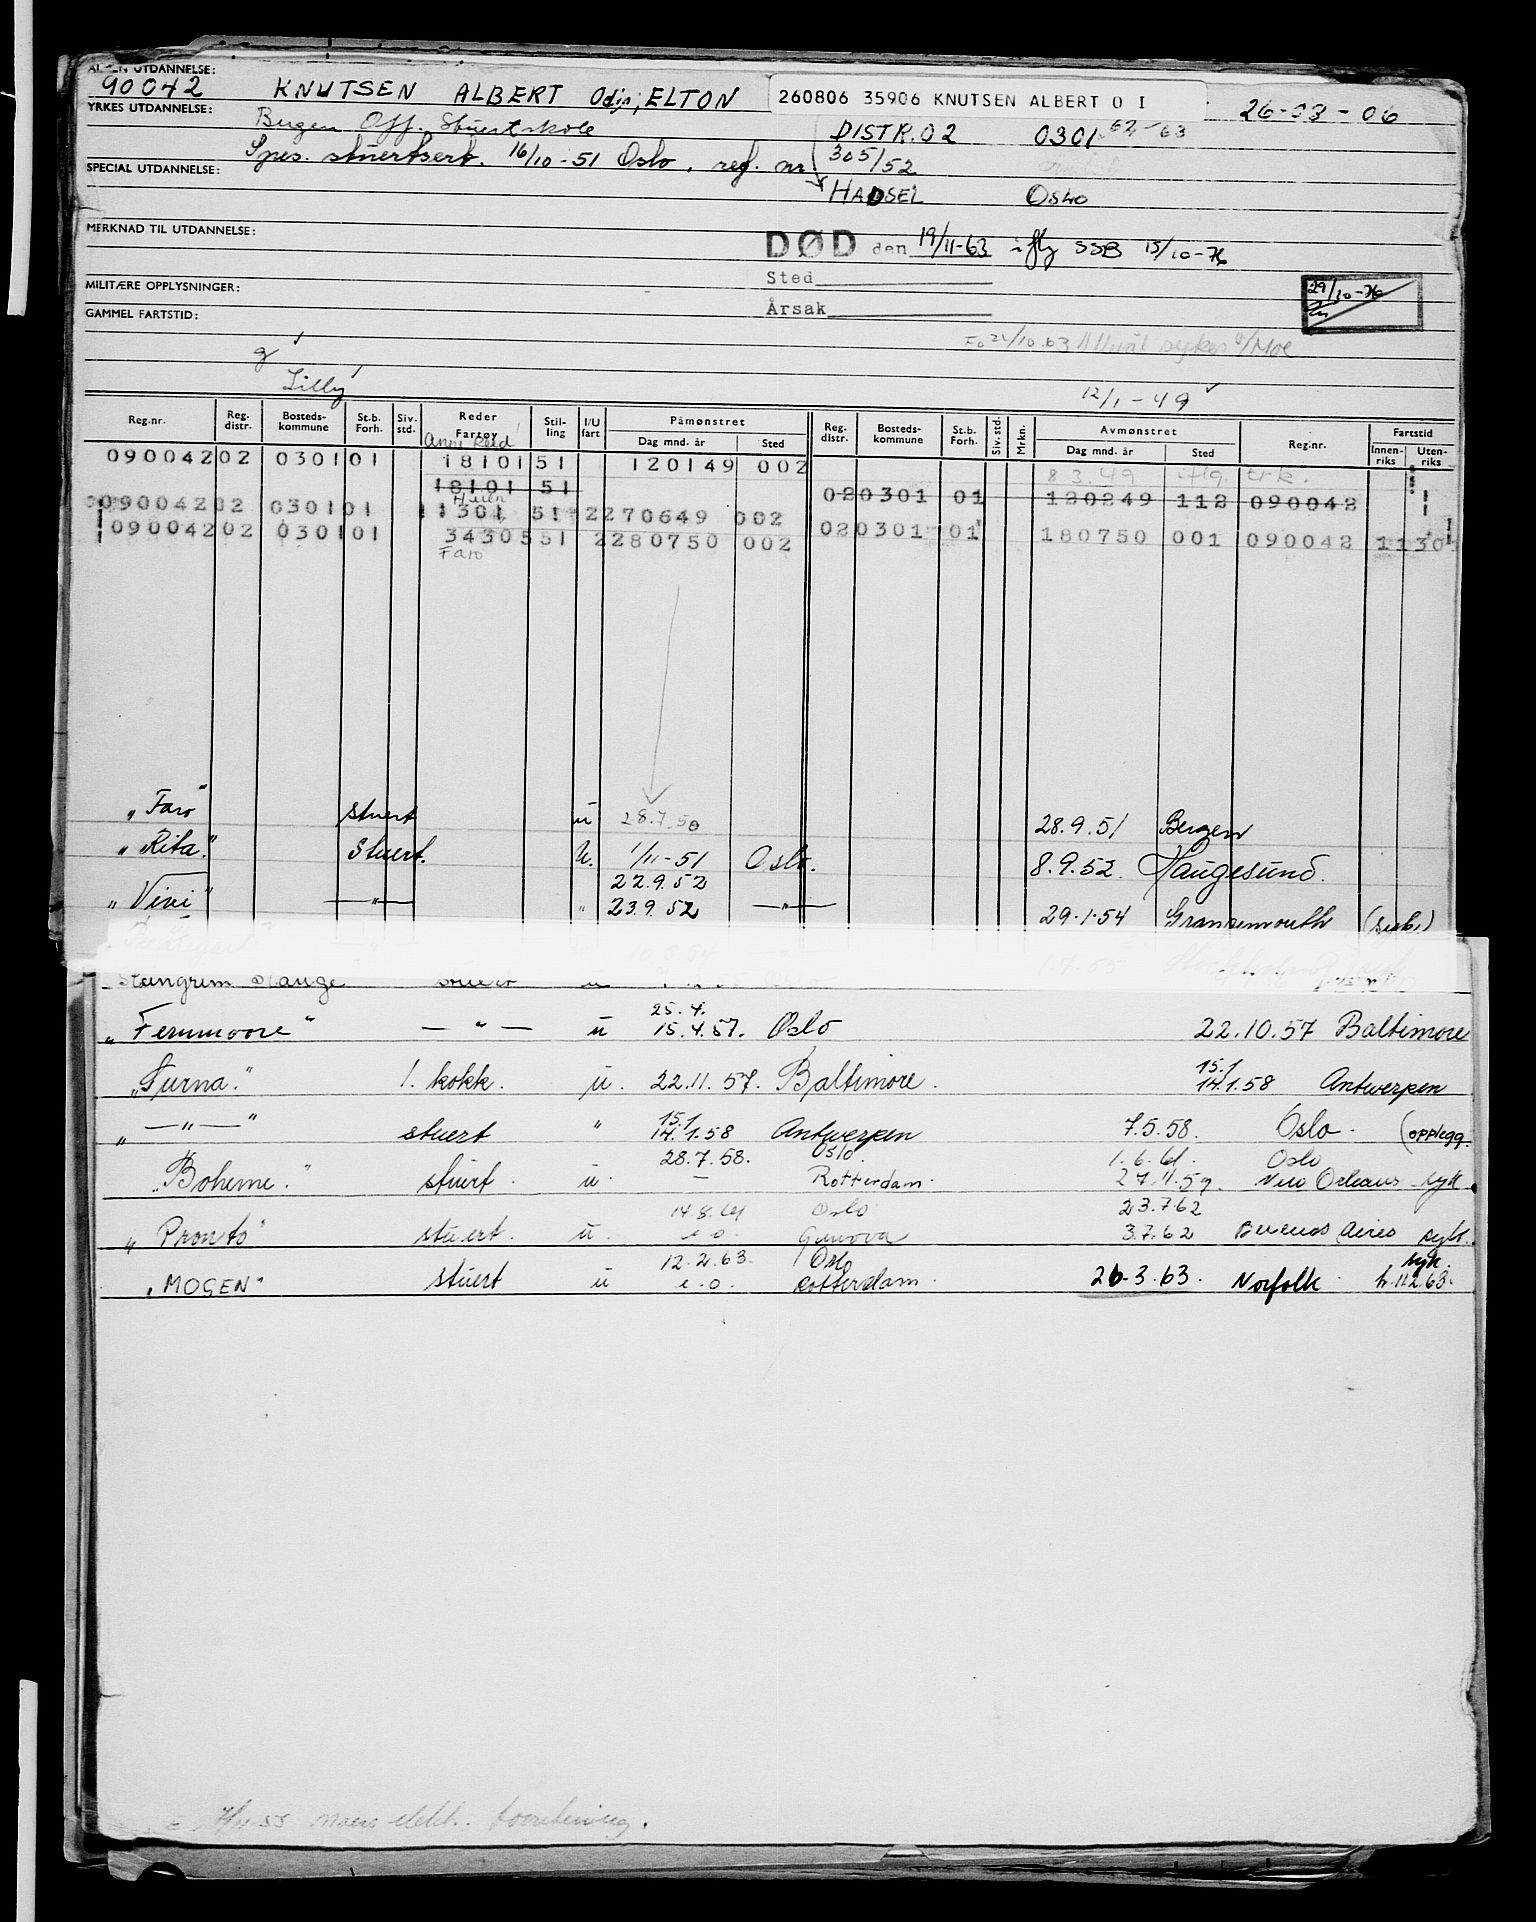 UTDANNELSE:
90042 KNUTSEN ALBERT Odin, ELTON 260806 35906 KNUTSEN ALBERT O I 26-08-06
YRKES UTDANNELSE: Bergen Off. Stuertskole DISTR. 02 0301 62-63
Spes. stuertsert. 16/10-51 Oslo, reg. nr. 305/52
SPECIAL UTDANNELSE:
HADSEL Oslo
MERKNAD TIL UTDANNELSE:
DØD den 19/11-63 iflg SSB 15/10-76
Sted
MILITÆRE OPPLYSNINGER: 29/10-76
GAMMEL FARTSTID: Årsak
Fo 24/10.63 sykes Moe
g
Lilly 12/1-49
Reg.nr. Reg. distr. Bosteds- kommune St.b. Forh. Siv. std. Reder Fartøy Stil- ling I/U fart Påmønstret Dag mnd. år Sted Reg. distr. Bosteds- kommune St.b. Forh. Siv. std. Mrkn. Avmønstret Dag mnd. år Sted Reg.nr. Fartstid Innen- riks Uten- riks
090042 02 0301 01 18101 51 120149 002 8 3.49
18101 51 020301 01 120249 112 090042
090042 02 0301 01 11301 51 2 270649 002
090042 02 0301 01 34305 51 2 280750 002 020301 01 180750 001 090042 1130
Faro
"Faro" stuert u 28.7.50 28.9.51 Bergen
"Rita" Stuert. U. 1/11-51 Oslo. 8.9.52. Haugesund.
22.9.52
"Vivi" —"— " 23.9.52 —"— 29.1.54 Grangemouth
Steingrim Hauge stuert u
25.4.
"Fernmoore" — " — u 15.4.57. Oslo 22.10.57 Baltimore
15.1
"Turna." 1. kokk. u. 22.11.57. Baltimore. 14.1.58 Antwerpen
15.1
" —"— " stuert " 14.1.58 Antwerpen 7.5.58. Oslo. (opplegg.
28.7.58. Oslo 1.6.61. Oslo
"Boheme." stuert. u. — Rotterdam. 27.11.59. New Orleans syk.
14.8.61 Oslo 23.7.62
"Pronto" stuert. u. e.o. Genova 3.7.62 Buenos Aires syk.
12.2.63. Oslo syk.
"MOGEN" stuert u e.o. Rotterdam. 26.3.63. Norfolk.